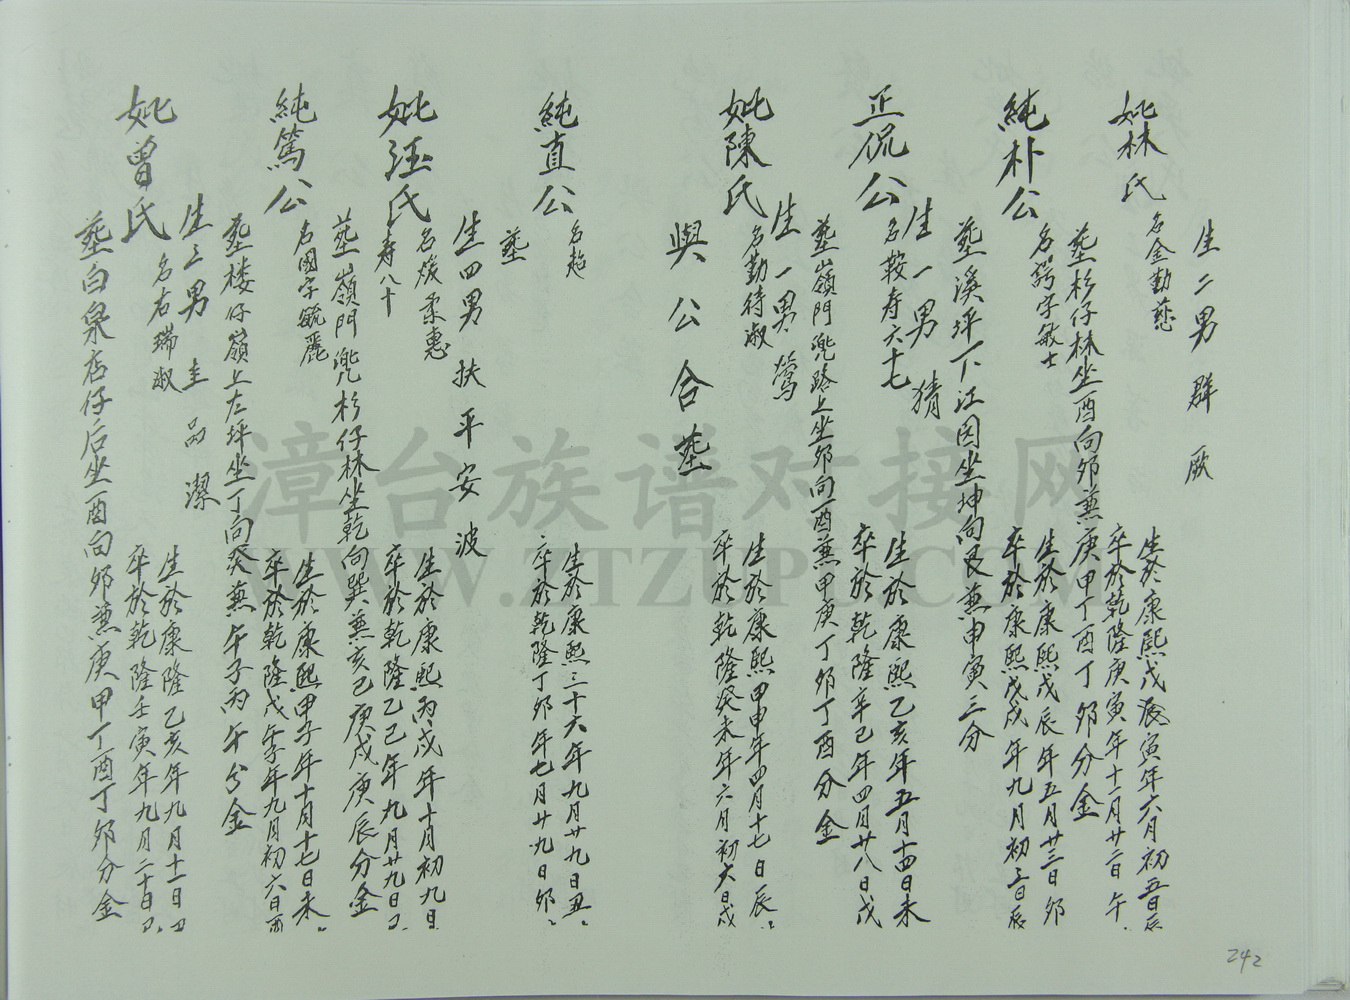 生二男 群 厥
妣林氏 名金勤慈
生於康熙戊辰寅年六月初五日辰
卒於乾隆庚寅年十一月廿二日午
葬杉仔林坐酉向卯兼庚甲丁酉丁卯分金
純朴公 名 字敏士
生於康熙戊辰年五月廿三日卯
卒於康熙戊戌年九月初三日辰
葬溪坪下江因坐坤向艮兼申寅三分
生一男 猜
正侃公 名鞍寿六十七
生於康熙乙亥年五月十四日未
卒於乾隆辛巳年四月廿八日戌
葬嶺門兜路上坐卯向酉兼甲庚丁卯丁酉分金
生一男 鶯
妣陳氏 名勤待淑
生於康熙甲申年四月十七日辰
卒於乾隆癸未年六月初六日戌
與公合葬
純直公 名超
生於康熙三十六年九月廿九日丑
卒於乾隆丁卯年七月廿九日卯
葬
生四男 扶 平 安 波
妣汪氏 名煖柔惠
寿八十
生於康熙丙戌年十月初九日
卒於乾隆乙巳年九月廿九日卫
葬嶺門兜杉仔林坐乾向巽兼亥己庚戌庚辰分金
純篤公 名國字毓麗
生於康熙甲子年十月十七日未
卒於乾隆戊午年九月初六日酉
葬楼仔嶺上左坪坐丁向癸兼午子丙午分金
生三男 圭 品 潔
妣曾氏 名右瑞淑
生於康隆乙亥年九月十一日卫
卒於乾隆壬寅年九月二十日卫
葬白泉店仔后坐酉向卯兼庚甲丁酉丁卯分金
242
漳台族谱对接网
WWW.ZTZUPU.COM